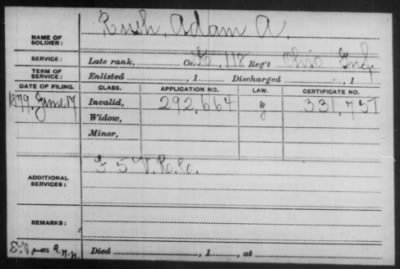 NAME OF SOLDIER: Rush, Adam A.
SERVICE: Late rank, Co. K, 118 Reg't Ohio Inf.
TERM OF SERVICE: Enlisted , 1 Discharged , 1
DATE OF FILING. CLASS. APPLICATION NO. LAW. CERTIFICATE NO.
1879, June 17 Invalid, 292,664 331,757
Widow,
Minor,
ADDITIONAL SERVICES:
REMARKS:
Died , 1 , at